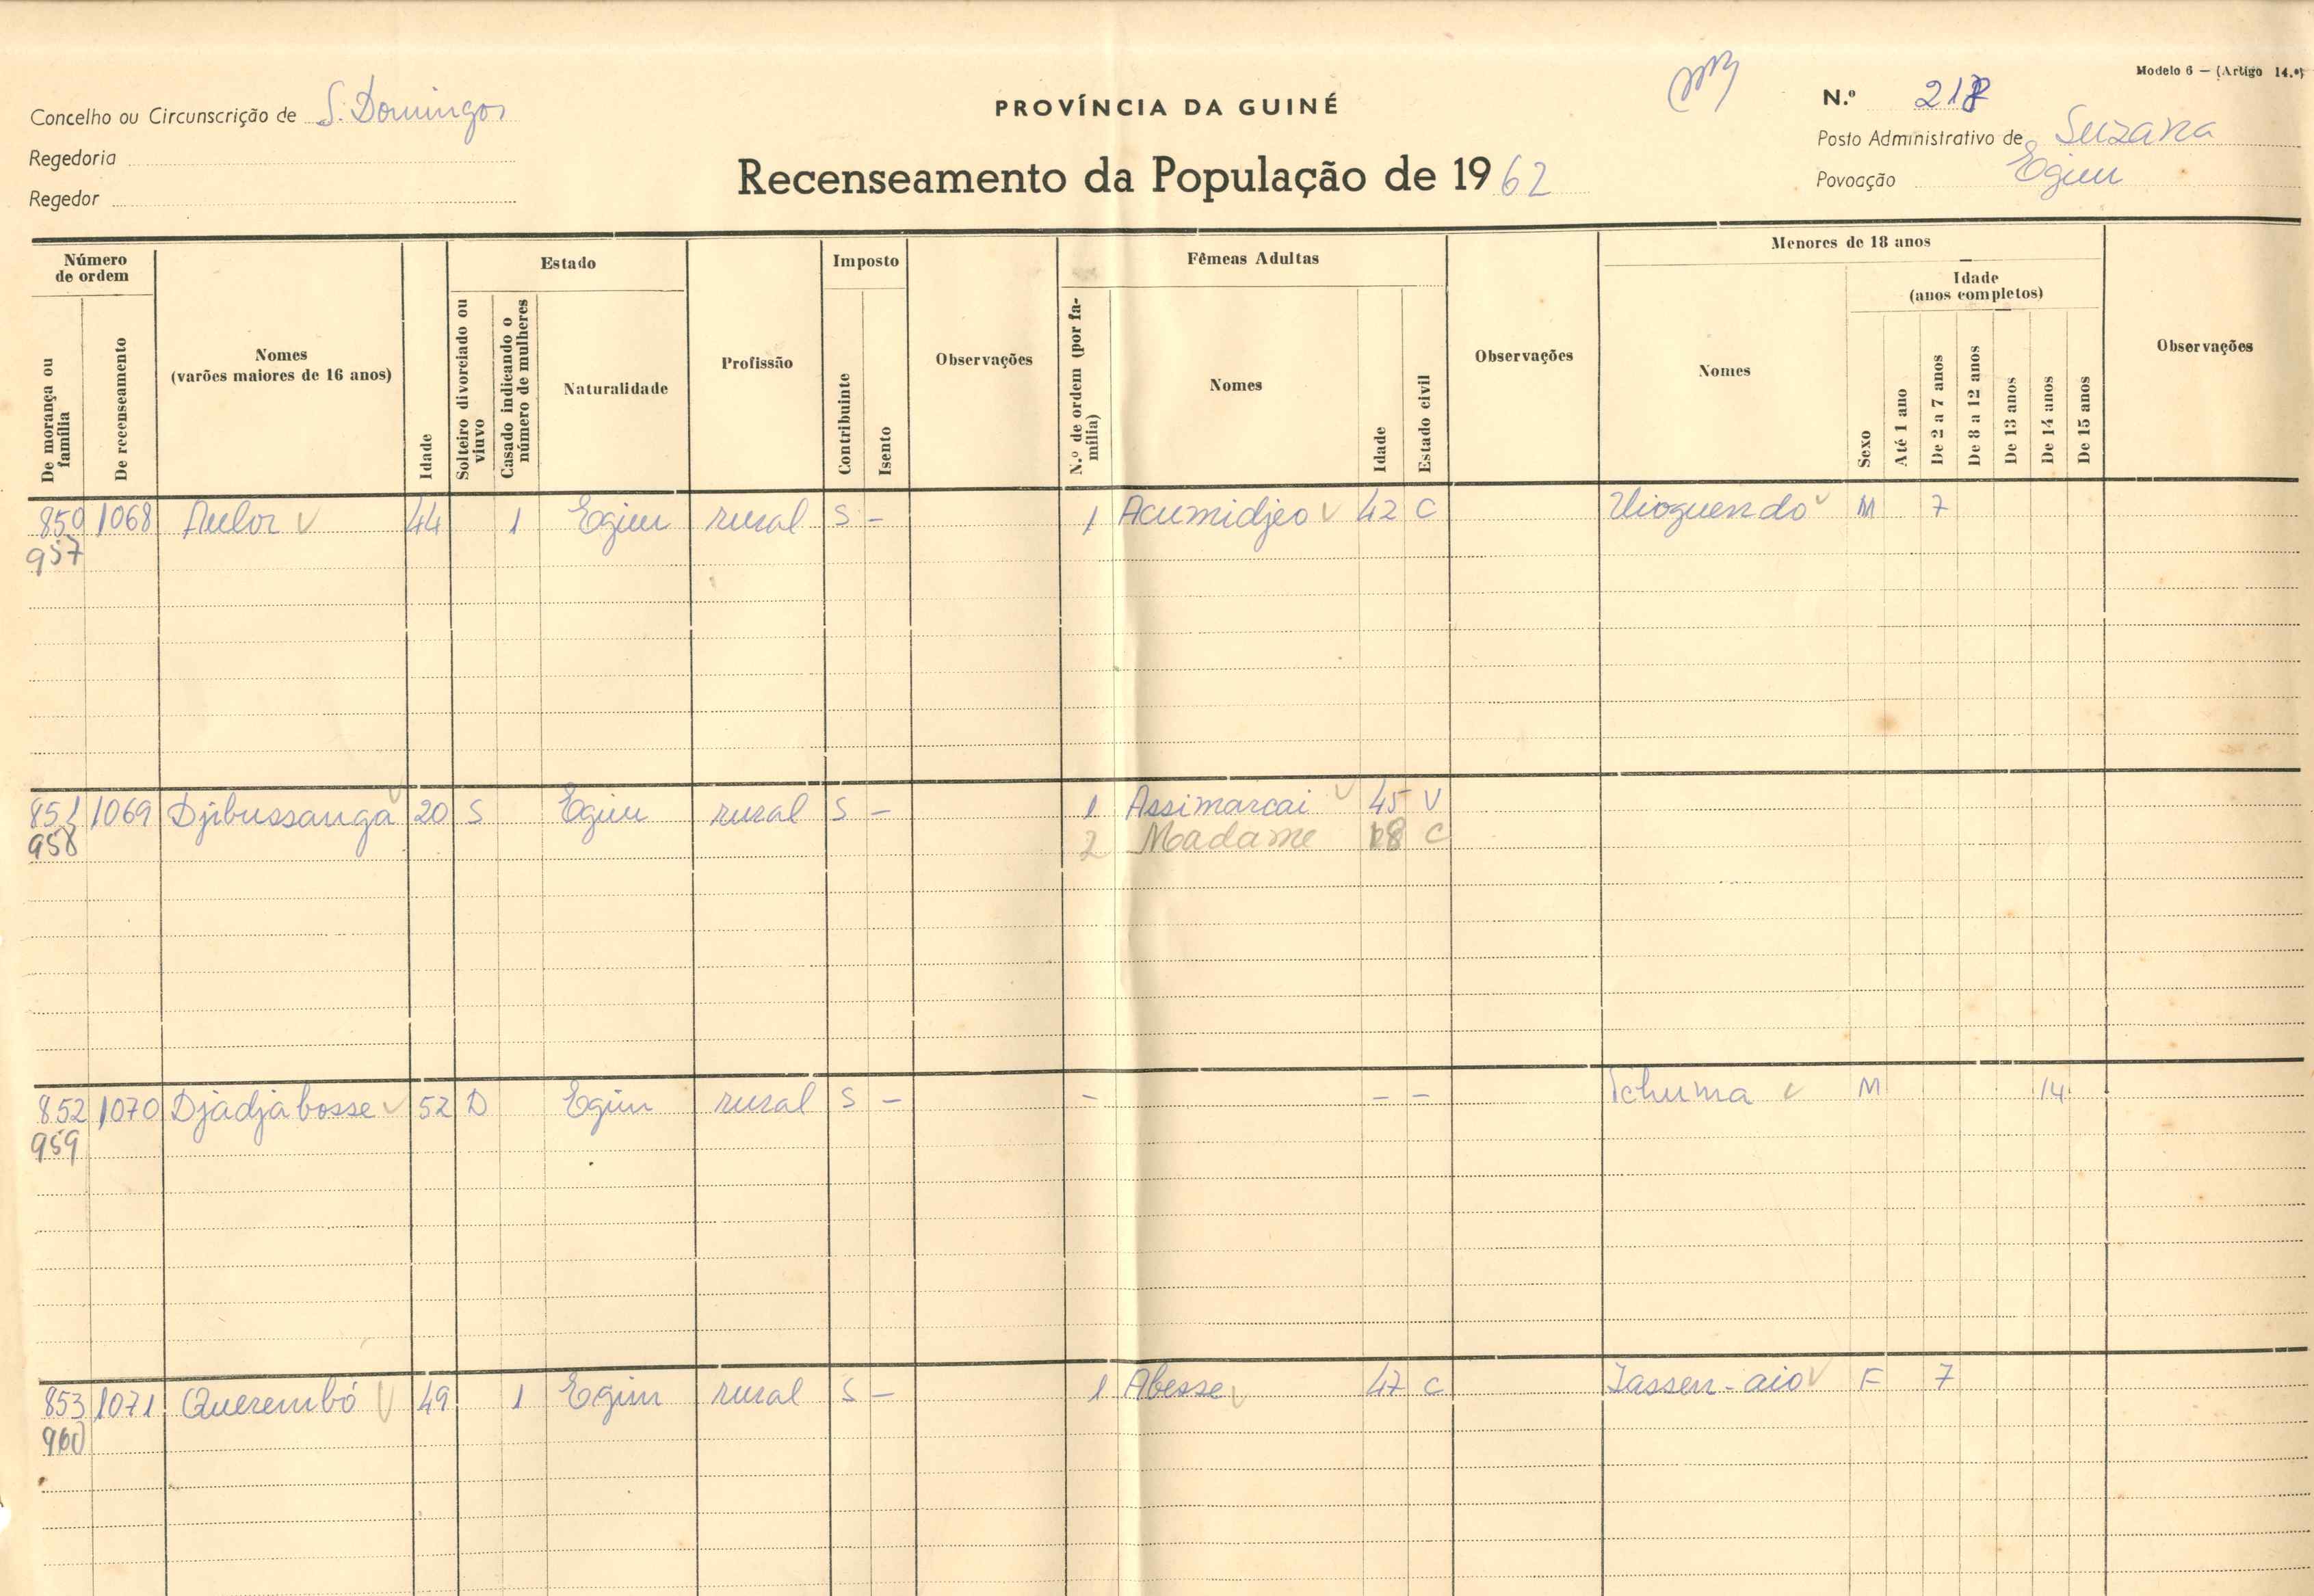 Modelo 6 — (Artigo 14.º)
PROVÍNCIA DA GUINÉ
N.º
Concelho ou Circunscrição de S. Domingos
Posto Administrativo de Suzana
Regedoria
Recenseamento da População de 1962
Povoação Egim
Regedor
Número de ordem
De morança ou família
De recenseamento
Nomes
(varões maiores de 16 anos)
Idade
Estado
Solteiro divorciado ou viuvo
Casado indicando o número de mulheres
Naturalidade
Profissão
Imposto
Contribuinte
Isento
Observações
Fêmeas Adultas
N.º de ordem (por família)
Nomes
Idade
Estado civil
Observações
Menores de 18 anos
Nomes
Sexo
Idade
(anos completos)
Até 1 ano
De 2 a 7 anos
De 8 a 12 anos
De 13 anos
De 14 anos
De 15 anos
Observações
850 1068 44 1 Egim rural S – 1 Acumidjeo 42 C M 7
957
851 1069 Djibussanga 20 S Egim rural S – 1 Assimarcai 45 V
958 2 Madame 18 C
852 1070 Djadjabosse 52 D Egim rural S – – – – Tchuma M 14
959
853 1071 Querembó 49 1 Egim rural S – 1 Abesse 47 C Jassen-aio F 7
960